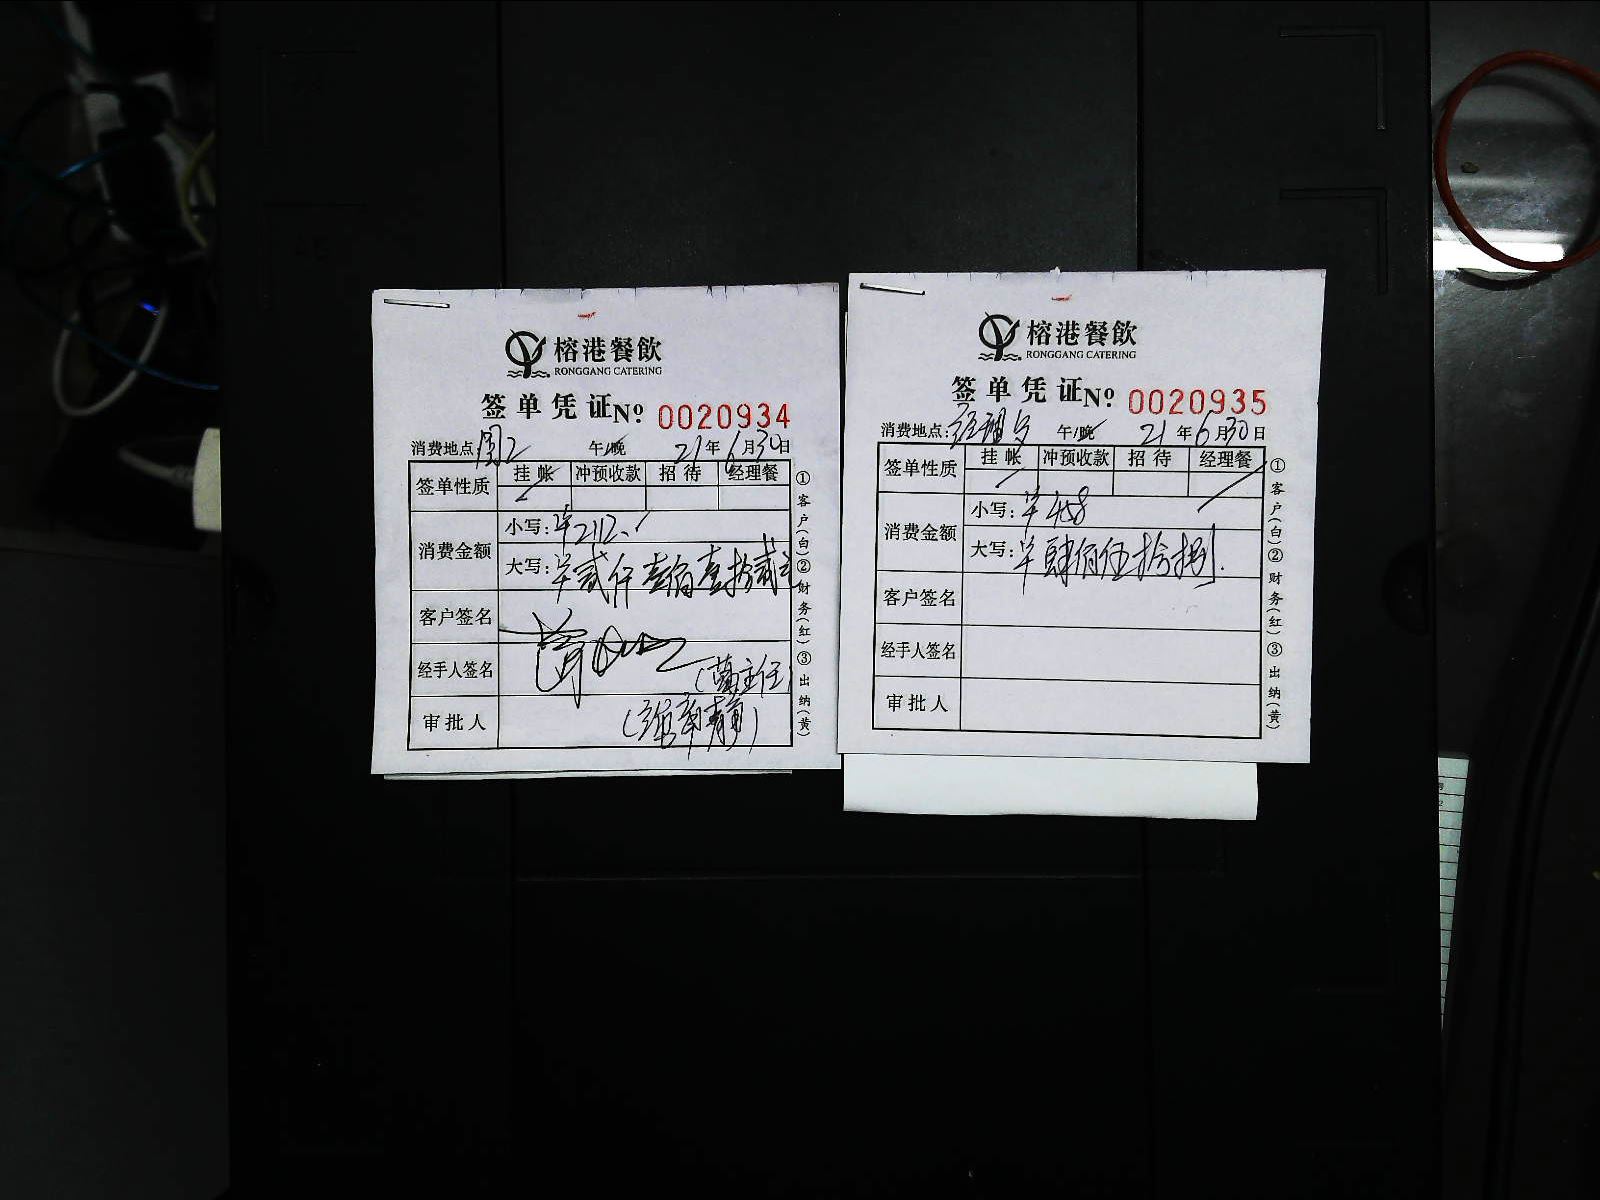 榕港餐飲
RONGGANG CATERING
签单凭证 Nº 0020934
消费地点: 午/晚 21年6月30日
签单性质 挂帐 冲预收款 招待 经理餐
消费金额 小写: 2112.
大写: 贰仟壹佰壹拾贰
客户签名
经手人签名
审批人
①客户(白)②财务(红)③出纳(黄)
榕港餐飲
RONGGANG CATERING
签单凭证 Nº 0020935
消费地点: 午/晚 21年6月30日
签单性质 挂帐 冲预收款 招待 经理餐
消费金额 小写: 458
大写: 肆佰伍拾捌
客户签名
经手人签名
审批人
①客户(白)②财务(红)③出纳(黄)